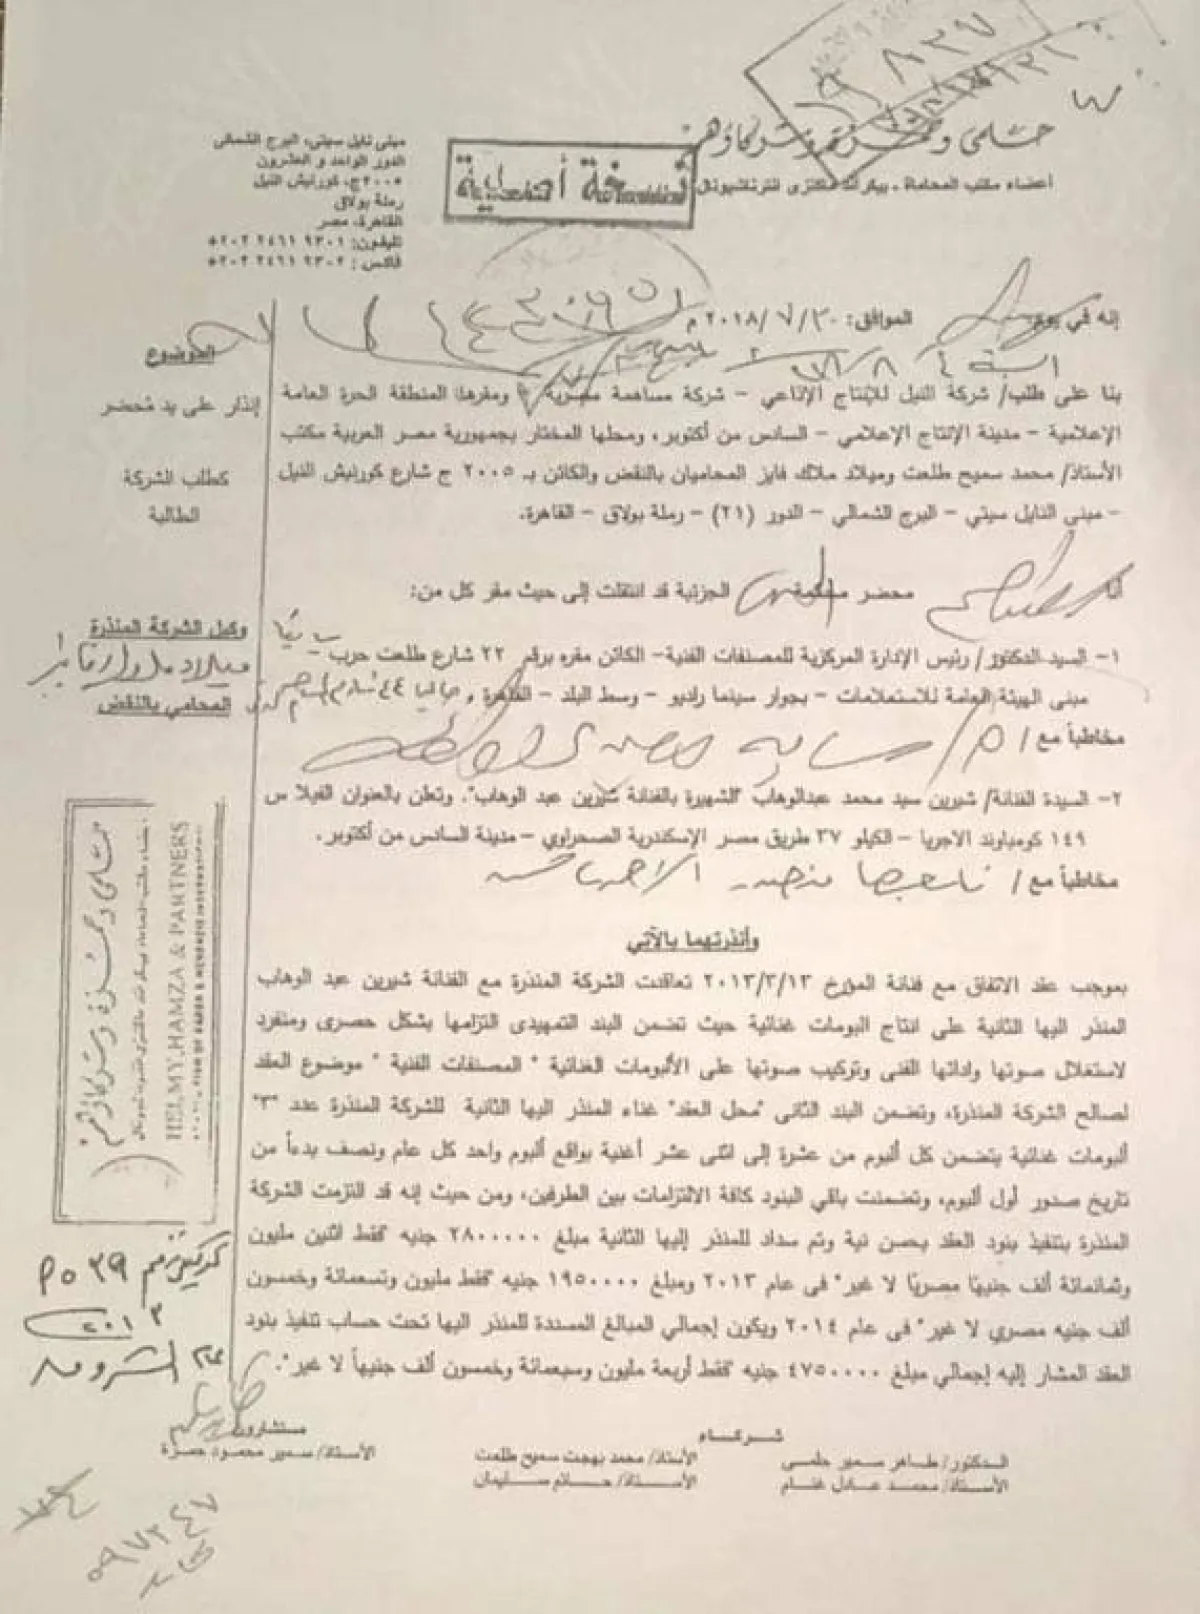 حلمى وحمزة وشركاؤهم
أعضاء مكتب المحاماة ـ بيكر اند مكنزى انترناشيونال
نسخة أصلية
مبنى نايل سيتى، البرج الشمالى
الدور الواحد و العشرون
٢٠٠٥ج، كورنيش النيل
رملة بولاق
القاهرة، مصر
تليفون: ٩٣٠١ ٢٤٦١ ٢٠٢+
فاكس : ٩٣٠٢ ٢٤٦١ ٢٠٢+
إنه في يوم الموافق: ٣٠/ ٧/ ٢٠١٨ م
الموضوع
إنذار على يد مُحضر
كطلب الشركة
الطالبة
بنا على طلب/ شركة النيل للإنتاج الإذاعي – شركة مساهمة مصرية – ومقرها المنطقة الحرة العامة
الإعلامية – مدينة الإنتاج الإعلامي – السادس من أكتوبر، ومحلها المختار بجمهورية مصر العربية مكتب
الأستاذ/ محمد سميح طلعت وميلاد ملاك فايز المحاميان بالنقض والكائن بـ ٢٠٠٥ ج شارع كورنيش النيل
– مبنى النايل سيتي – البرج الشمالي – الدور (٢١) – رملة بولاق – القاهرة.
أنا محضر محكمة الجزئية قد انتقلت إلى حيث مقر كل من:
وكيل الشركة المنذرة
المحامي بالنقض
١– السيد الدكتور/ رئيس الإدارة المركزية للمصنفات الفنية– الكائن مقره برقم ٢٢ شارع طلعت حرب –
مبنى الهيئة العامة للاستعلامات – بجوار سينما راديو – وسط البلد – القاهرة ,
مخاطباً مع /
٢– السيدة الفنانة/ شيرين سيد محمد عبدالوهاب "الشهيرة بالفنانة شيرين عبد الوهاب". وتعلن بالعنوان الفيلا س
١٤٩ كومباوند الاجريا – الكيلو ٣٧ طريق مصر الإسكندرية الصحراوي – مدينة السادس من أكتوبر.
مخاطباً مع /
وأنذرتهما بالآتي
بموجب عقد الاتفاق مع فنانة المؤرخ ٢٠١٣/٣/١٣ تعاقدت الشركة المنذرة مع الفنانة شيرين عبد الوهاب
المنذر اليها الثانية على انتاج البومات غنائية حيث تضمن البند التمهيدى التزامها بشكل حصرى ومنفرد
لاستغلال صوتها واداتها الفنى وتركيب صوتها على الألبومات الغنائية " المصنفات الفنية " موضوع العقد
لصالح الشركة المنذرة، وتضمن البند الثانى "محل العقد" غناء المنذر اليها الثانية للشركة المنذرة عدد "٣"
ألبومات غنائية يتضمن كل ألبوم من عشرة إلى اثنى عشر أغنية بواقع ألبوم واحد كل عام ونصف بدءاً من
تاريخ صدور أول ألبوم، وتضمنت باقي البنود كافة الالتزامات بين الطرفين، ومن حيث إنه قد التزمت الشركة
المنذرة بتنفيذ بنود العقد بحسن نية وتم سداد للمنذر إليها الثانية مبلغ ٢٨٠٠٠٠٠ جنيه "فقط اثنين مليون
وثمانمائة ألف جنيهًا مصريًا لا غير" فى عام ٢٠١٣ ومبلغ ١٩٥٠٠٠٠ جنيه "فقط مليون وتسعمائة وخمسون
ألف جنيه مصري لا غير" فى عام ٢٠١٤ ويكون إجمالي المبالغ المسددة للمنذر اليها تحت حساب تنفيذ بنود
العقد المشار إليه إجمالي مبلغ ٤٧٥٠٠٠٠ جنيه "فقط أربعة مليون وسبعمائة وخمسون ألف جنيهاً لا غير".
حلمى وحمزة وشركاؤهم
HELMY, HAMZA & PARTNERS
شركاء
الدكتور/ طاهر سمير حلمى
الأستاذ/ محمد عادل غنام
الأستاذ/ محمد بهجت سميح طلعت
الأستاذ/ حاتم سليمان
مستشارون
الأستاذ/ سمير محمود حمزة